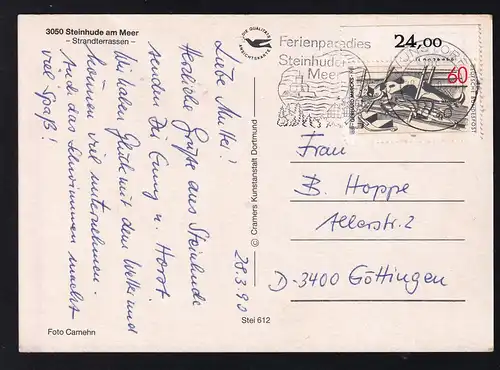 3050 Steinhude am Meer
- Strandterrassen -
DIE QUALITÄTS
ANSICHTSKARTE
Liebe Mutter!
Herzliche Grüße aus Steinhude
senden Dir u. Horst.
Wir haben Glück mit dem Wetter und
können viel unternehmen.
Auch das Schwimmen macht
viel Spaß!
28.3.90
Foto Camehn
© Cramers Kunstanstalt Dortmund
Stei 612
Ferienparadies
Steinhuder
Meer
24,00
60
Frau
B. Hoppe
Allerstr. 2
D-3400 Göttingen